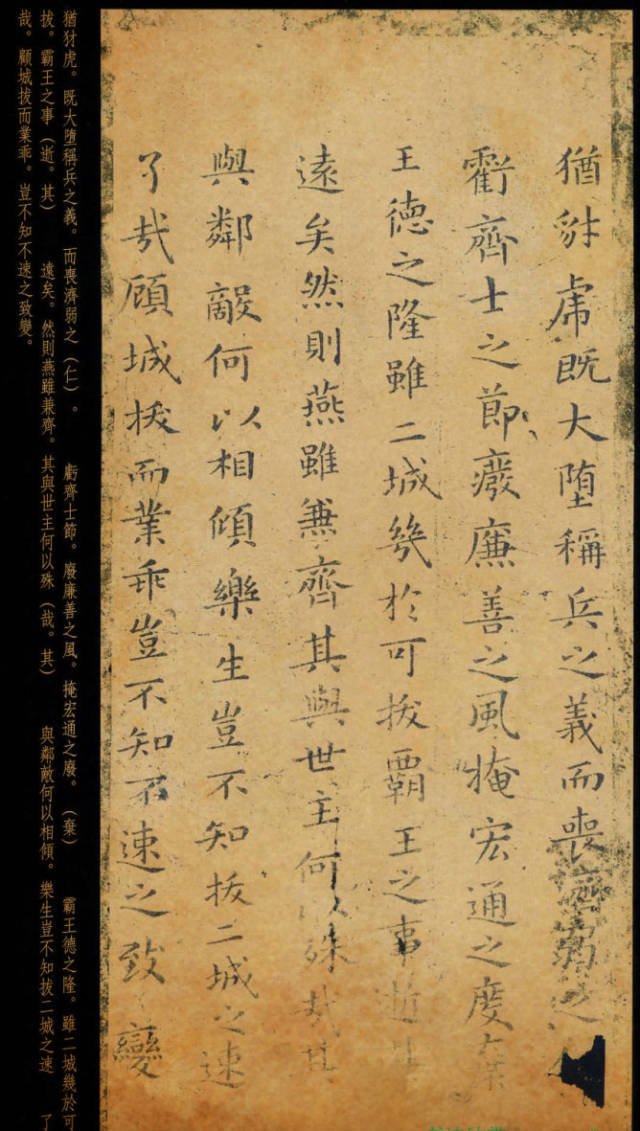 猶豺虎既大堕稱兵之義而喪濟弱之
虧齊士之節廢廉善之風掩宏通之度棄
王德之隆雖二城幾於可拔霸王之事逝其
遠矣然則燕雖兼齊其與世主何以殊哉其
與鄰敵何以相傾樂生豈不知拔二城之速
了哉顧城拔而業乖豈不知不速之致變
猶豺虎。既大堕稱兵之義。而喪濟弱之（仁）。 虧齊士節。廢廉善之風。掩宏通之廢。（棄） 霸王德之隆。雖二城幾於可
拔。霸王之事（逝。其） 遠矣。然則燕雖兼齊。其與世主何以殊（哉。其） 與鄰敵何以相傾。樂生豈不知拔二城之速 了
哉。顧城拔而業乖。豈不知不速之致變。